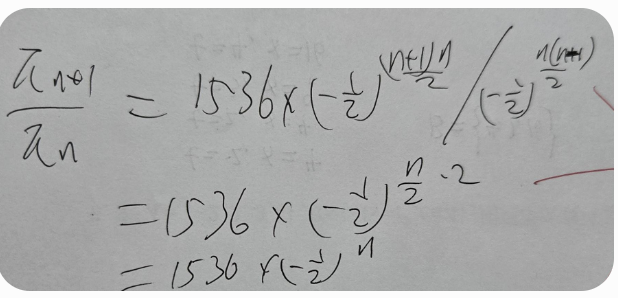 π_{n+1}/π_n = 1536×(-1/2)^{(n+1)n/2} / (-1/2)^{n(n-1)/2}
=1536×(-1/2)^{n/2·2}
=1536×(-1/2)^n